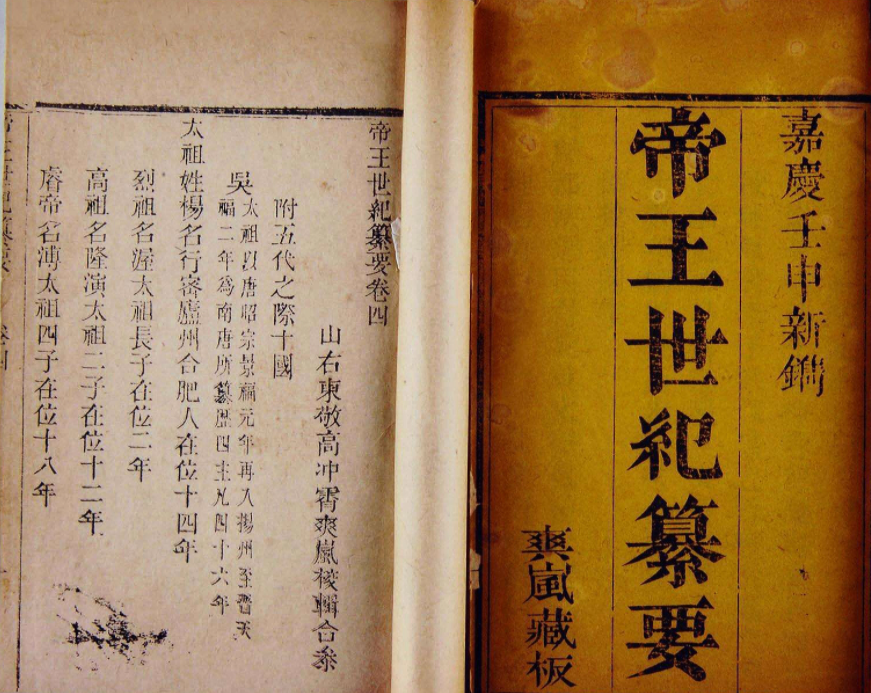 嘉慶壬申新鐫
帝王世紀纂要
爽嵐藏板
帝王世紀纂要卷四
山右東敬高冲霄爽嵐校輯合參
附五代之際十國
吳
太祖以唐昭宗景福元年再入揚州至晋天
福二年爲南唐所簒歷四主凡四十六年
太祖姓楊名行密廬州合肥人在位十四年
烈祖名渥太祖長子在位二年
高祖名隆演太祖二子在位十二年
睿帝名溥太祖四子在位十八年
帝王世紀纂要 卷四